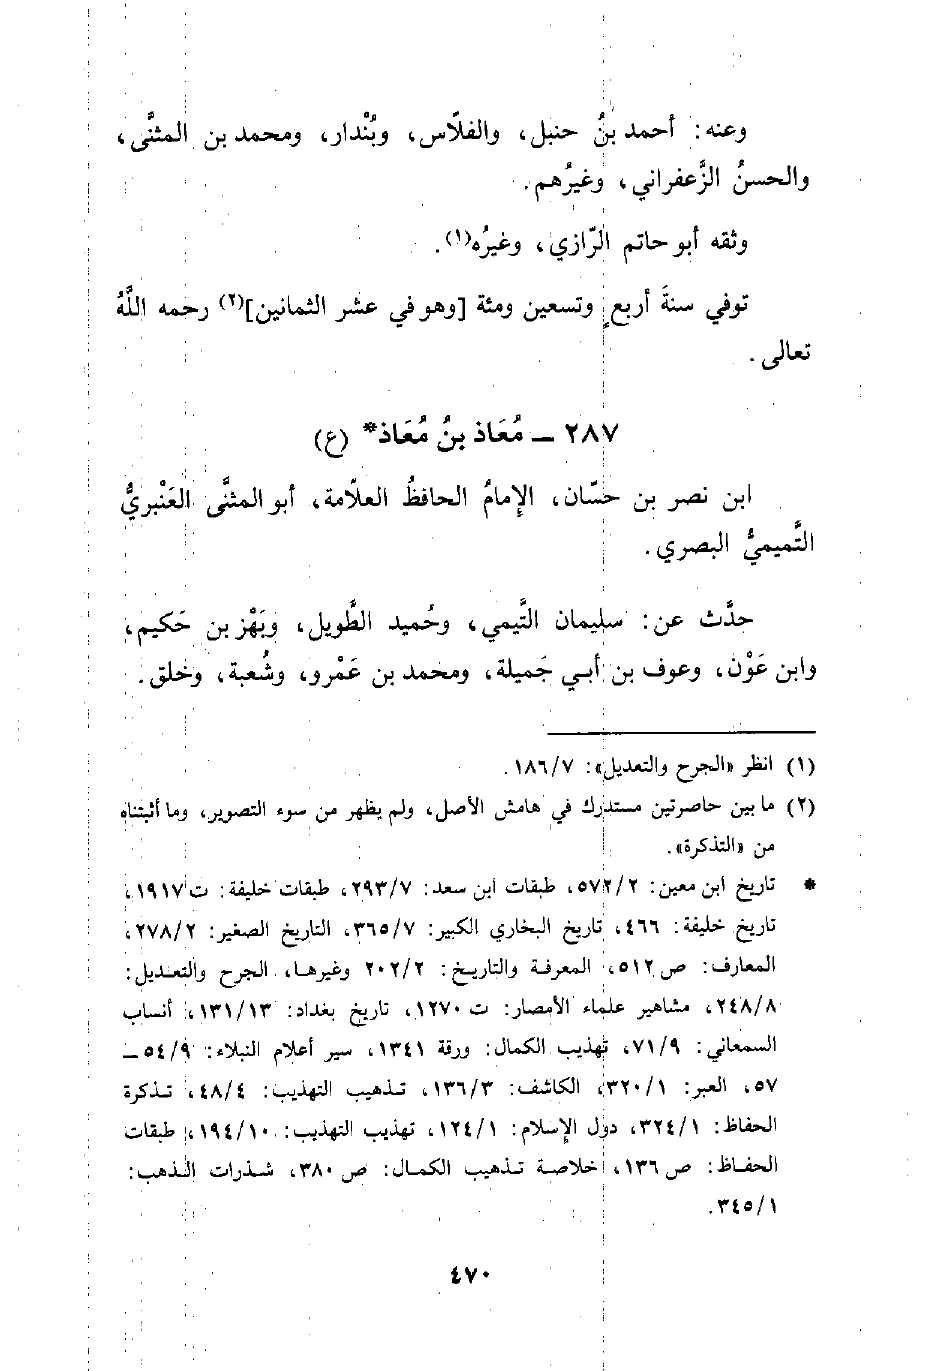 وعنه: أحمد بنُ حنبل، والفلّاس، وبُنْدار، ومحمد بن المثنَّى،
والحسنُ الزَّعفراني، وغيرُهم.
وثقه أبو حاتم الرّازي، وغيرُه(١).
توفي سنةَ أربعٍ وتسعين ومئة [وهو في عشر الثمانين](٢) رحمه اللَّهُ
تعالى.
٢٨٧ ــ مُعَاذ بنُ مُعَاذ* (ع)
ابن نصر بن حسّان، الإِمامُ الحافظُ العلّامة، أبو المثنَّى العَنْبريُّ
التَّميميُّ البصري.
حدَّث عن: سليمان التَّيمي، وحُميد الطَّويل، وبَهْز بن حَكيم،
وابن عَوْن، وعوف بن أبي جَميلة، ومحمد بن عَمْرو، وشُعبة، وخلق.
(١) انظر «الجرح والتعديل»: ١٨٦/٧.
(٢) ما بين حاصرتين مستدرك في هامش الأصل، ولم يظهر من سوء التصوير، وما أثبتناه
من «التذكرة».
* تاريخ ابن معين: ٥٧٢/٢، طبقات ابن سعد: ٢٩٣/٧، طبقات خليفة: ت ١٩١٧،
تاريخ خليفة: ٤٦٦، تاريخ البخاري الكبير: ٣٦٥/٧، التاريخ الصغير: ٢٧٨/٢،
المعارف: ص ٥١٢، المعرفة والتاريخ: ٢٠٢/٢ وغيرها، الجرح والتعديل:
٢٤٨/٨، مشاهير علماء الأمصار: ت ١٢٧٠، تاريخ بغداد: ١٣١/١٣، أنساب
السمعاني: ٧١/٩، تهذيب الكمال: ورقة ١٣٤١، سير أعلام النبلاء: ٥٤/٩ ــ
٥٧، العبر: ٣٢٠/١، الكاشف: ١٣٦/٣، تذهيب التهذيب: ٤٨/٤، تذكرة
الحفاظ: ٣٢٤/١، دول الإِسلام: ١٢٤/١، تهذيب التهذيب: ١٩٤/١٠، طبقات
الحفاظ: ص ١٣٦، خلاصة تذهيب الكمال: ص ٣٨٠، شذرات الذهب:
٣٤٥/١.
٤٧٠